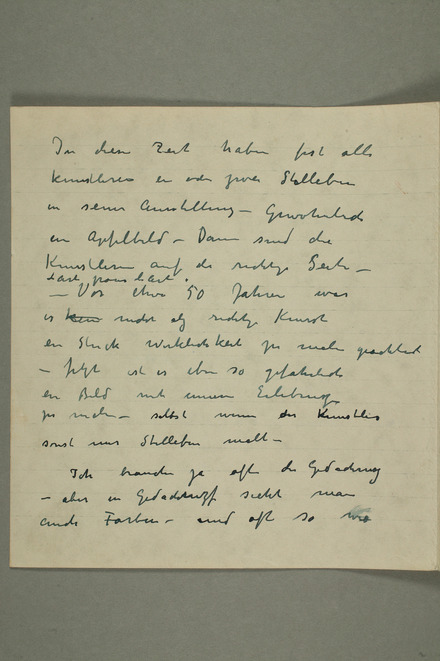 In dieser Zeit haben fast alle
Künstleren ein oder zwei Stilleben
in seiner Ausstellung – Gewohnlich
ein Apfelbild – Dann sind die
Künstleren auf der richtige Seite –
– Vor etwa 50 Jahren war
es kein nicht als richtige Kunst
ein Stück Wirklichkeit zu malen
– Jetzt ist es eben so gefährlich
ein Bild mit unserer
zu malen – selbst wenn der Künstler
sonst nur Stilleben malt –
Ich brauche ja oft die
– aber in sieht man
auch Farben – und oft so wie